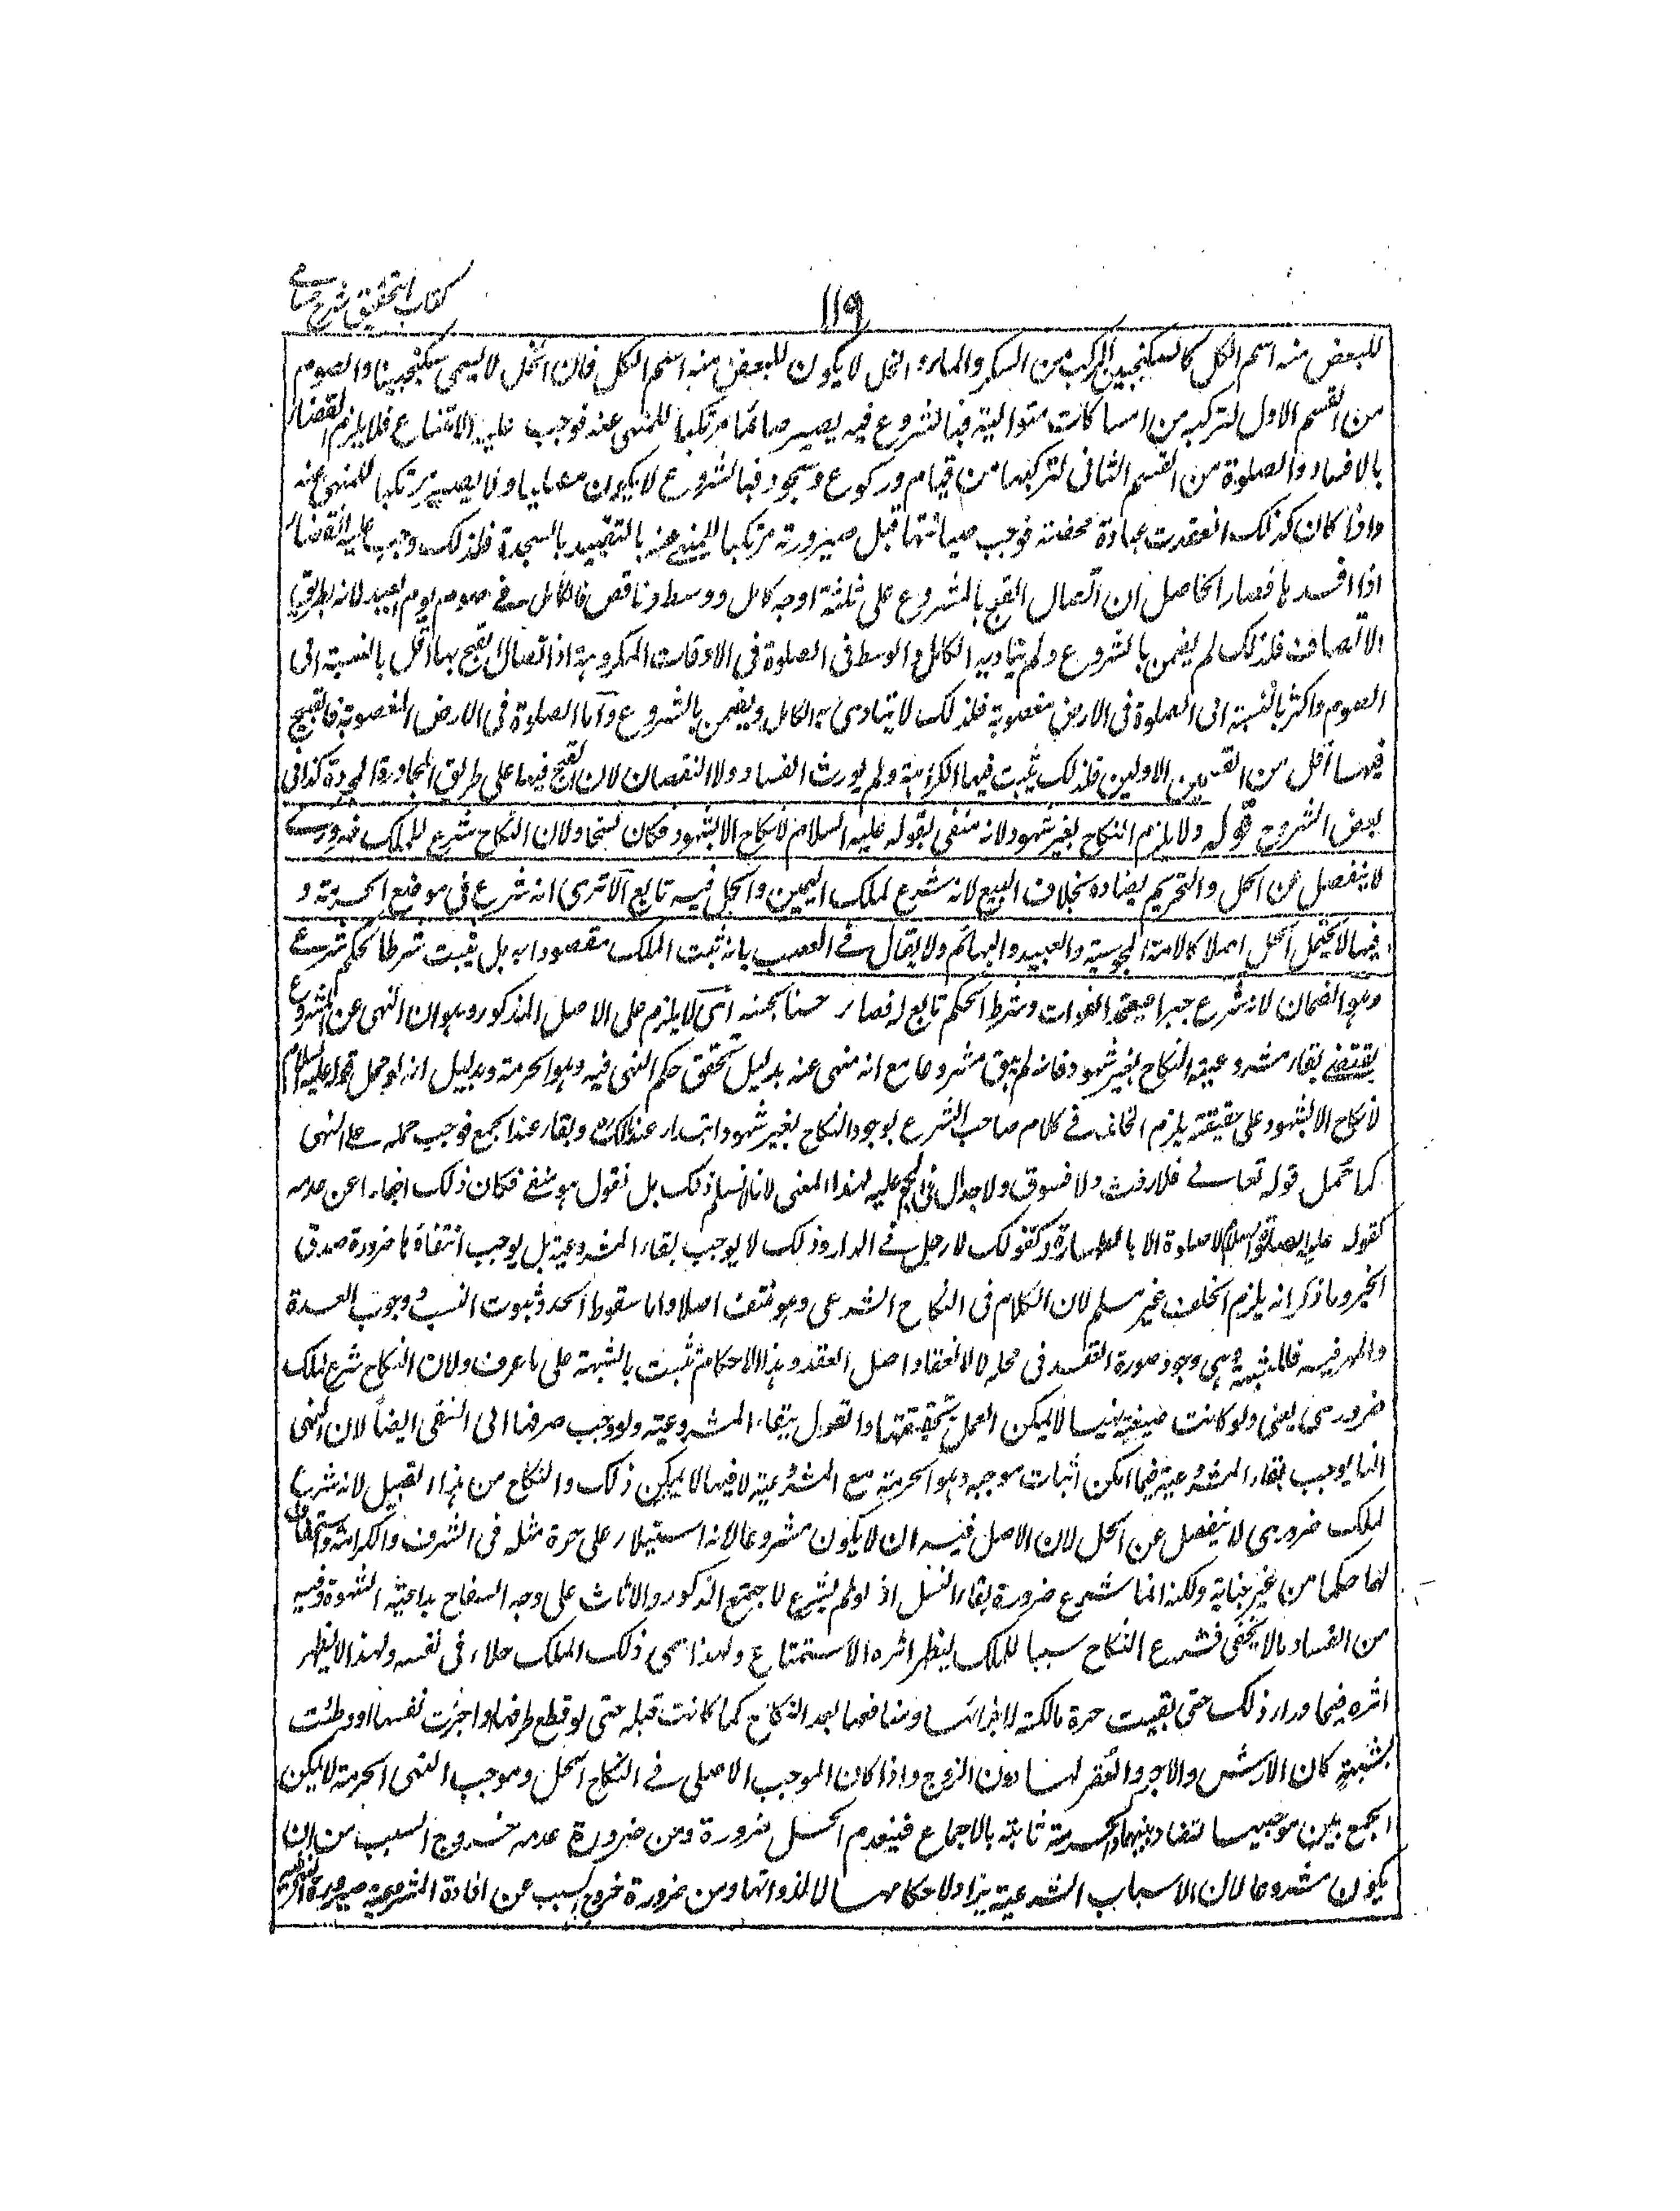 كتاب التحقيق شرح حسامي
١١٩
للبعض منه اسم الكل كالسكنجبين المركب من السكر والماء والخل لا يكون للبعض منه اسم الكل فان الخل لا يسمى سكنجبينا والصوم
من القسم الاول لتركبه من امساكات متوالية فبالشروع فيه يصير صائما مرتكبا للمنهى عنه فوجب عليه الامتناع فلا يلزم القضاء
بالافساد والصلوة من القسم الثانى لتركبها من قيام وركوع وسجود فبالشروع لا يكون مصليا ولا يصير مرتكبا للمنهى عنه
واذا كان كذلك انعقدت عبادة محضة فوجب صيانتها قبل صيرورته مرتكبا للمنهى عنه بالتقييد بالسجدة فلذلك وجب عليه القضاء
اذا افسدها فصار الحاصل ان اتصال القبح بالشروع على ثلثة اوجه كامل ووسط وناقص فالكامل فى صوم يوم العيد لانه بطريق
الاتصاف فلذلك لم يضمن بالشروع ولم يتاد به الكامل والوسط فى الصلوة فى الاوقات المكروهة اذ اتصال القبح بها اقل بالنسبة الى
الصوم واكثر بالنسبة الى الصلوة فى الارض مغصوبة فلذلك لا يتادى به الكامل ويضمن بالشروع واما الصلوة فى الارض المغصوبة فالقبح
فيها اقل من القسمين الاولين فلذلك يثبت فيها الكراهة ولم يورث الفساد ولا النقصان لان القبح فيها على طريق المجاورة المجردة كذا فى
بعض الشروح قوله ولا يلزم النكاح بغير شهود لانه منفى بقوله عليه السلام لا نكاح الا بشهود فكان نسخا ولان النكاح شرع لملك ضرورى
لا ينفصل عن الحل والتحريم يضاده بخلاف البيع لانه شرع لملك اليمين والحل فيه تابع الا ترى انه شرع فى موضع الحرمة و
فيما لا يحتمل الحل اصلا كالامة المجوسية والعبيد والبهائم ولا يقال فى الغصب بانه ثبت الملك مقصودا به بل يثبت شرطا لحكم شرعى
وهو الضمان لانه شرع جبرا فيعتمد الفوات وشرط الحكم تابع له فصار حسنا بحسنه اى لا يلزم على الاصل المذكور وهو ان النهى عن المشروع
يقتضى بقاء مشروعيته النكاح بغير شهود فانه لم يبق مشروعا مع انه منهى عنه بدليل تحقق حكم النهى فيه وهو الحرمة وبدليل انه لو حمل قوله عليه السلام
لا نكاح الا بشهود على حقيقته يلزم الخلف فى كلام صاحب الشرع لوجود النكاح بغير شهود ابتداء عند مالك وبقاء عند الجميع فوجب حمله على النهى
كما حمل قوله تعالى فلا رفث ولا فسوق ولا جدال فى الحج عليه لهذا المعنى لانا لا نسلم ذلك بل نقول هو منفى فكان ذلك اخبارا عن عدمه
كقوله عليه الصلوة والسلام لا صلوة الا بالطهارة وكقولك لا رجل فى الدار وذلك لا يوجب بقاء المشروعية بل يوجب انتفاءها ضرورة صدق
الخبر وما ذكر انه يلزم الخلف غير مسلم لان الكلام فى النكاح الشرعى وهو منتف اصلا واما سقوط الحد وثبوت النسب ووجوب العدة
والمهر فيه فللشبهة وهى وجود صورة العقد فى محله لا لانعقاد اصل العقد وهذه الاحكام تثبت بالشبهة على ما عرف ولان النكاح شرع لملك
ضرورى يعنى ولو كانت صيغته نهيا لا يمكن العمل بحقيقتها والقول ببقاء المشروعية ولوجب صرفها الى النفى ايضا لان النهى
انما يوجب بقاء المشروعية فيما امكن اثبات موجبه وهو الحرمة مع المشروعية لا فيما لا يمكن ذلك والنكاح من هذا القبيل لانه شرع
لملك ضرورى لا ينفصل عن الحل لان الاصل فيه ان لا يكون مشروعا لانه استيلاء على حرة مثله فى الشرف والكرامة
لها حكما من غير جناية ولكنه انما شرع ضرورة بقاء النسل اذ لو لم يشرع لاجتمع الذكور والاناث على وجه السفاح بداعية الشهوة وفيه
من الفساد ما لا يخفى فشرع النكاح سببا للملك ليظهر اثره الاستمتاع ولهذا سمى ذلك الملك حلا فى نفسه ولهذا لا يظهر
اثره فيما وراء ذلك حتى بقيت حرة مالكة لاجزائها ومنافعها بعد النكاح كما كانت قبله حتى لو قطع طرفها او اجرت نفسها او وطئت
بشبهة كان الارش والاجر والعقر لها دون الزوج واذا كان الموجب الاصلى فى النكاح الحل وموجب النهى الحرمة لا يمكن
الجمع بين موجبيهما لتضاد بينهما والحرمة ثابتة بالاجماع فينعدم الحل ضرورة ومن ضرورة عدمه خروج السبب من ان
يكون مشروعا لان الاسباب الشرعية تراد لاحكامها لا لذواتها ومن ضرورة خروج السبب عن افادة المشروعية صيرورة